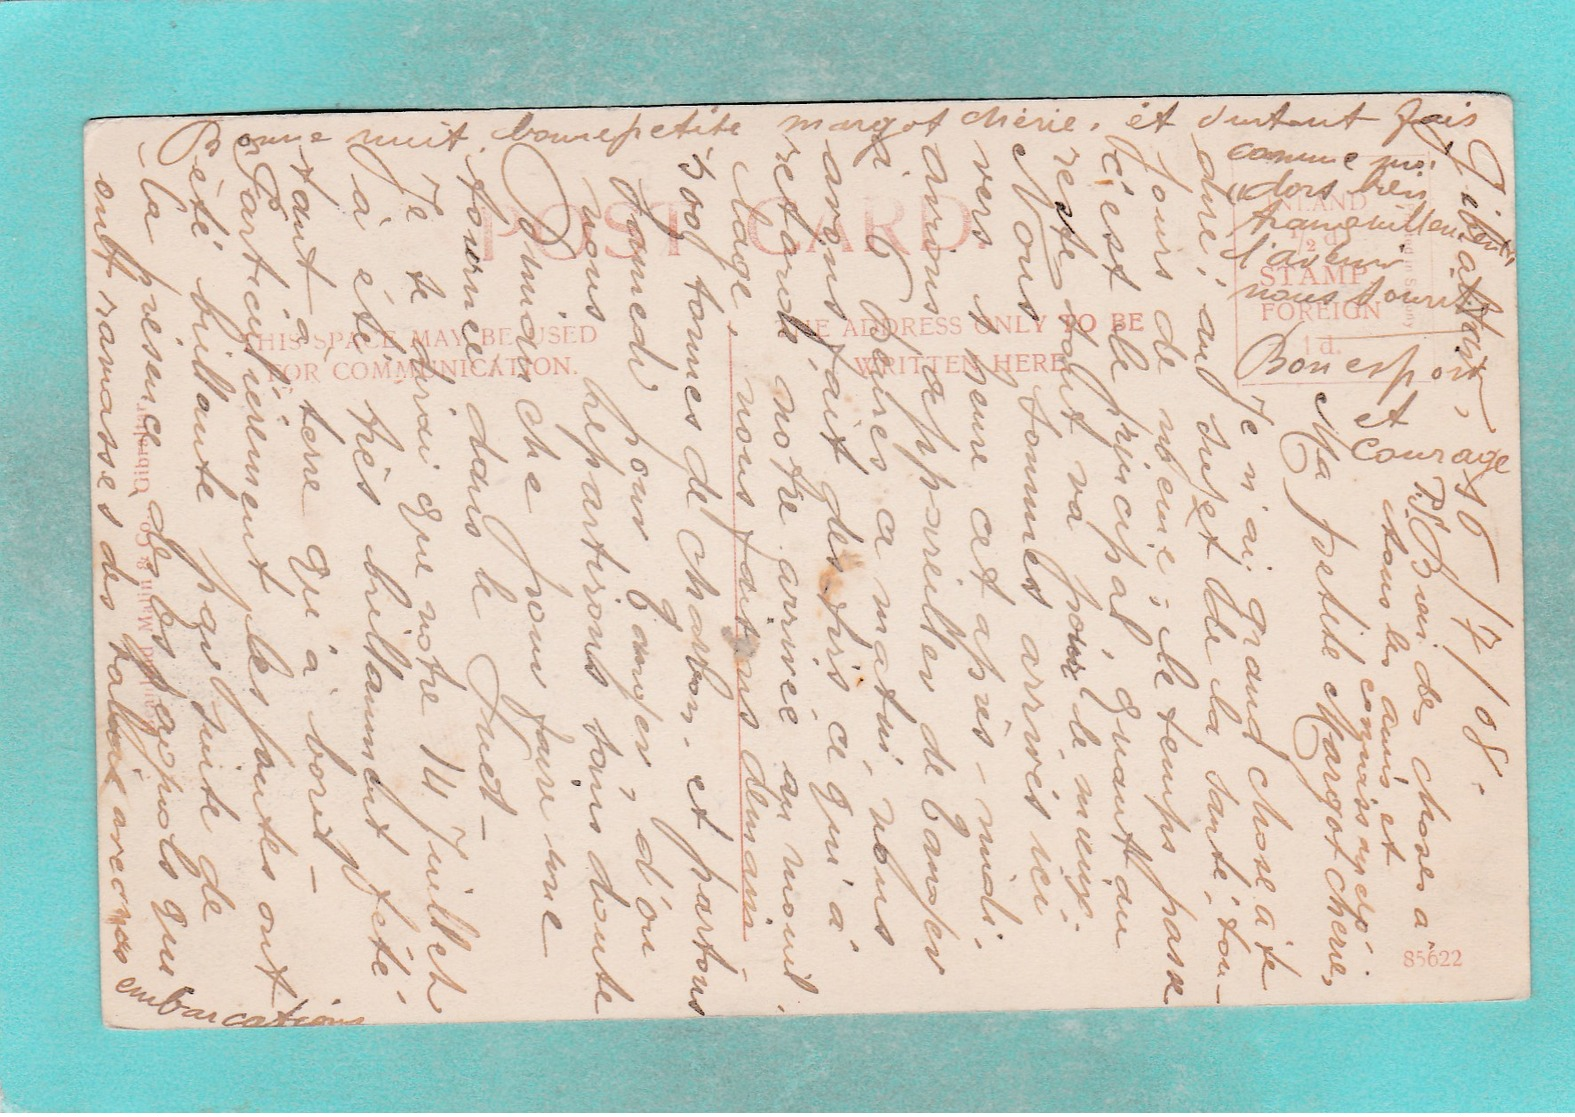 Gibraltar, 16/7/08.
Ma petite Margot chérie,
Je n'ai grand chose à te
dire, au sujet de la santé, tou-
jours de même ; le temps passe
c'est le principal, quant au
reste tout va pour le mieux.
Nous sommes arrivés ici
vers 1 heure cet après-midi.
avions appareiller de Tanger
à 6 heures ce matin, nous
avons fait des tirs ce qui a
retardé notre arrivée au mouil-
lage, nous faisons demain
500 tonnes de charbon, et partons
Samedi pour Tanger, d'où
nous repartirons sans doute
Dimanche pour faire une
tournée dans le Sud -
Je te dirai que notre 14 Juillet
a été très brillamment fêté,
tant à terre qu'à bord -
Particulièrement les joutes ont
été brillante par suite de
la présence de espagnols qui
ont ramassés des
embarcations
Bonne nuit, bonne petite margot chérie, et surtout fais
comme moi
dors bien
tranquillement
l'avenir
nous sourit
Bon espoir
et
courage
P.S. Bien des choses à
tous les amis et
connaissances
POST CARD
THIS SPACE MAY BE USED
FOR COMMUNICATION.
THE ADDRESS ONLY TO BE
WRITTEN HERE
INLAND
½d.
STAMP
FOREIGN
1d.
85622